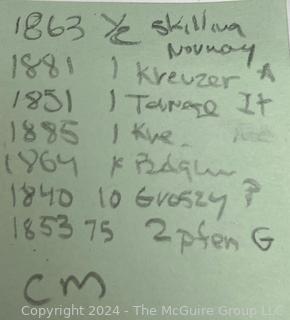 1863 1/2 Skilling
Norway
1881 1 Kreuzer A
1851 1 It
1885 1 Kre.
1864
1840 10 Groszy ?
1853 75 2 pfen G
CM
Copyright 2024 - The McGuire Group LLC